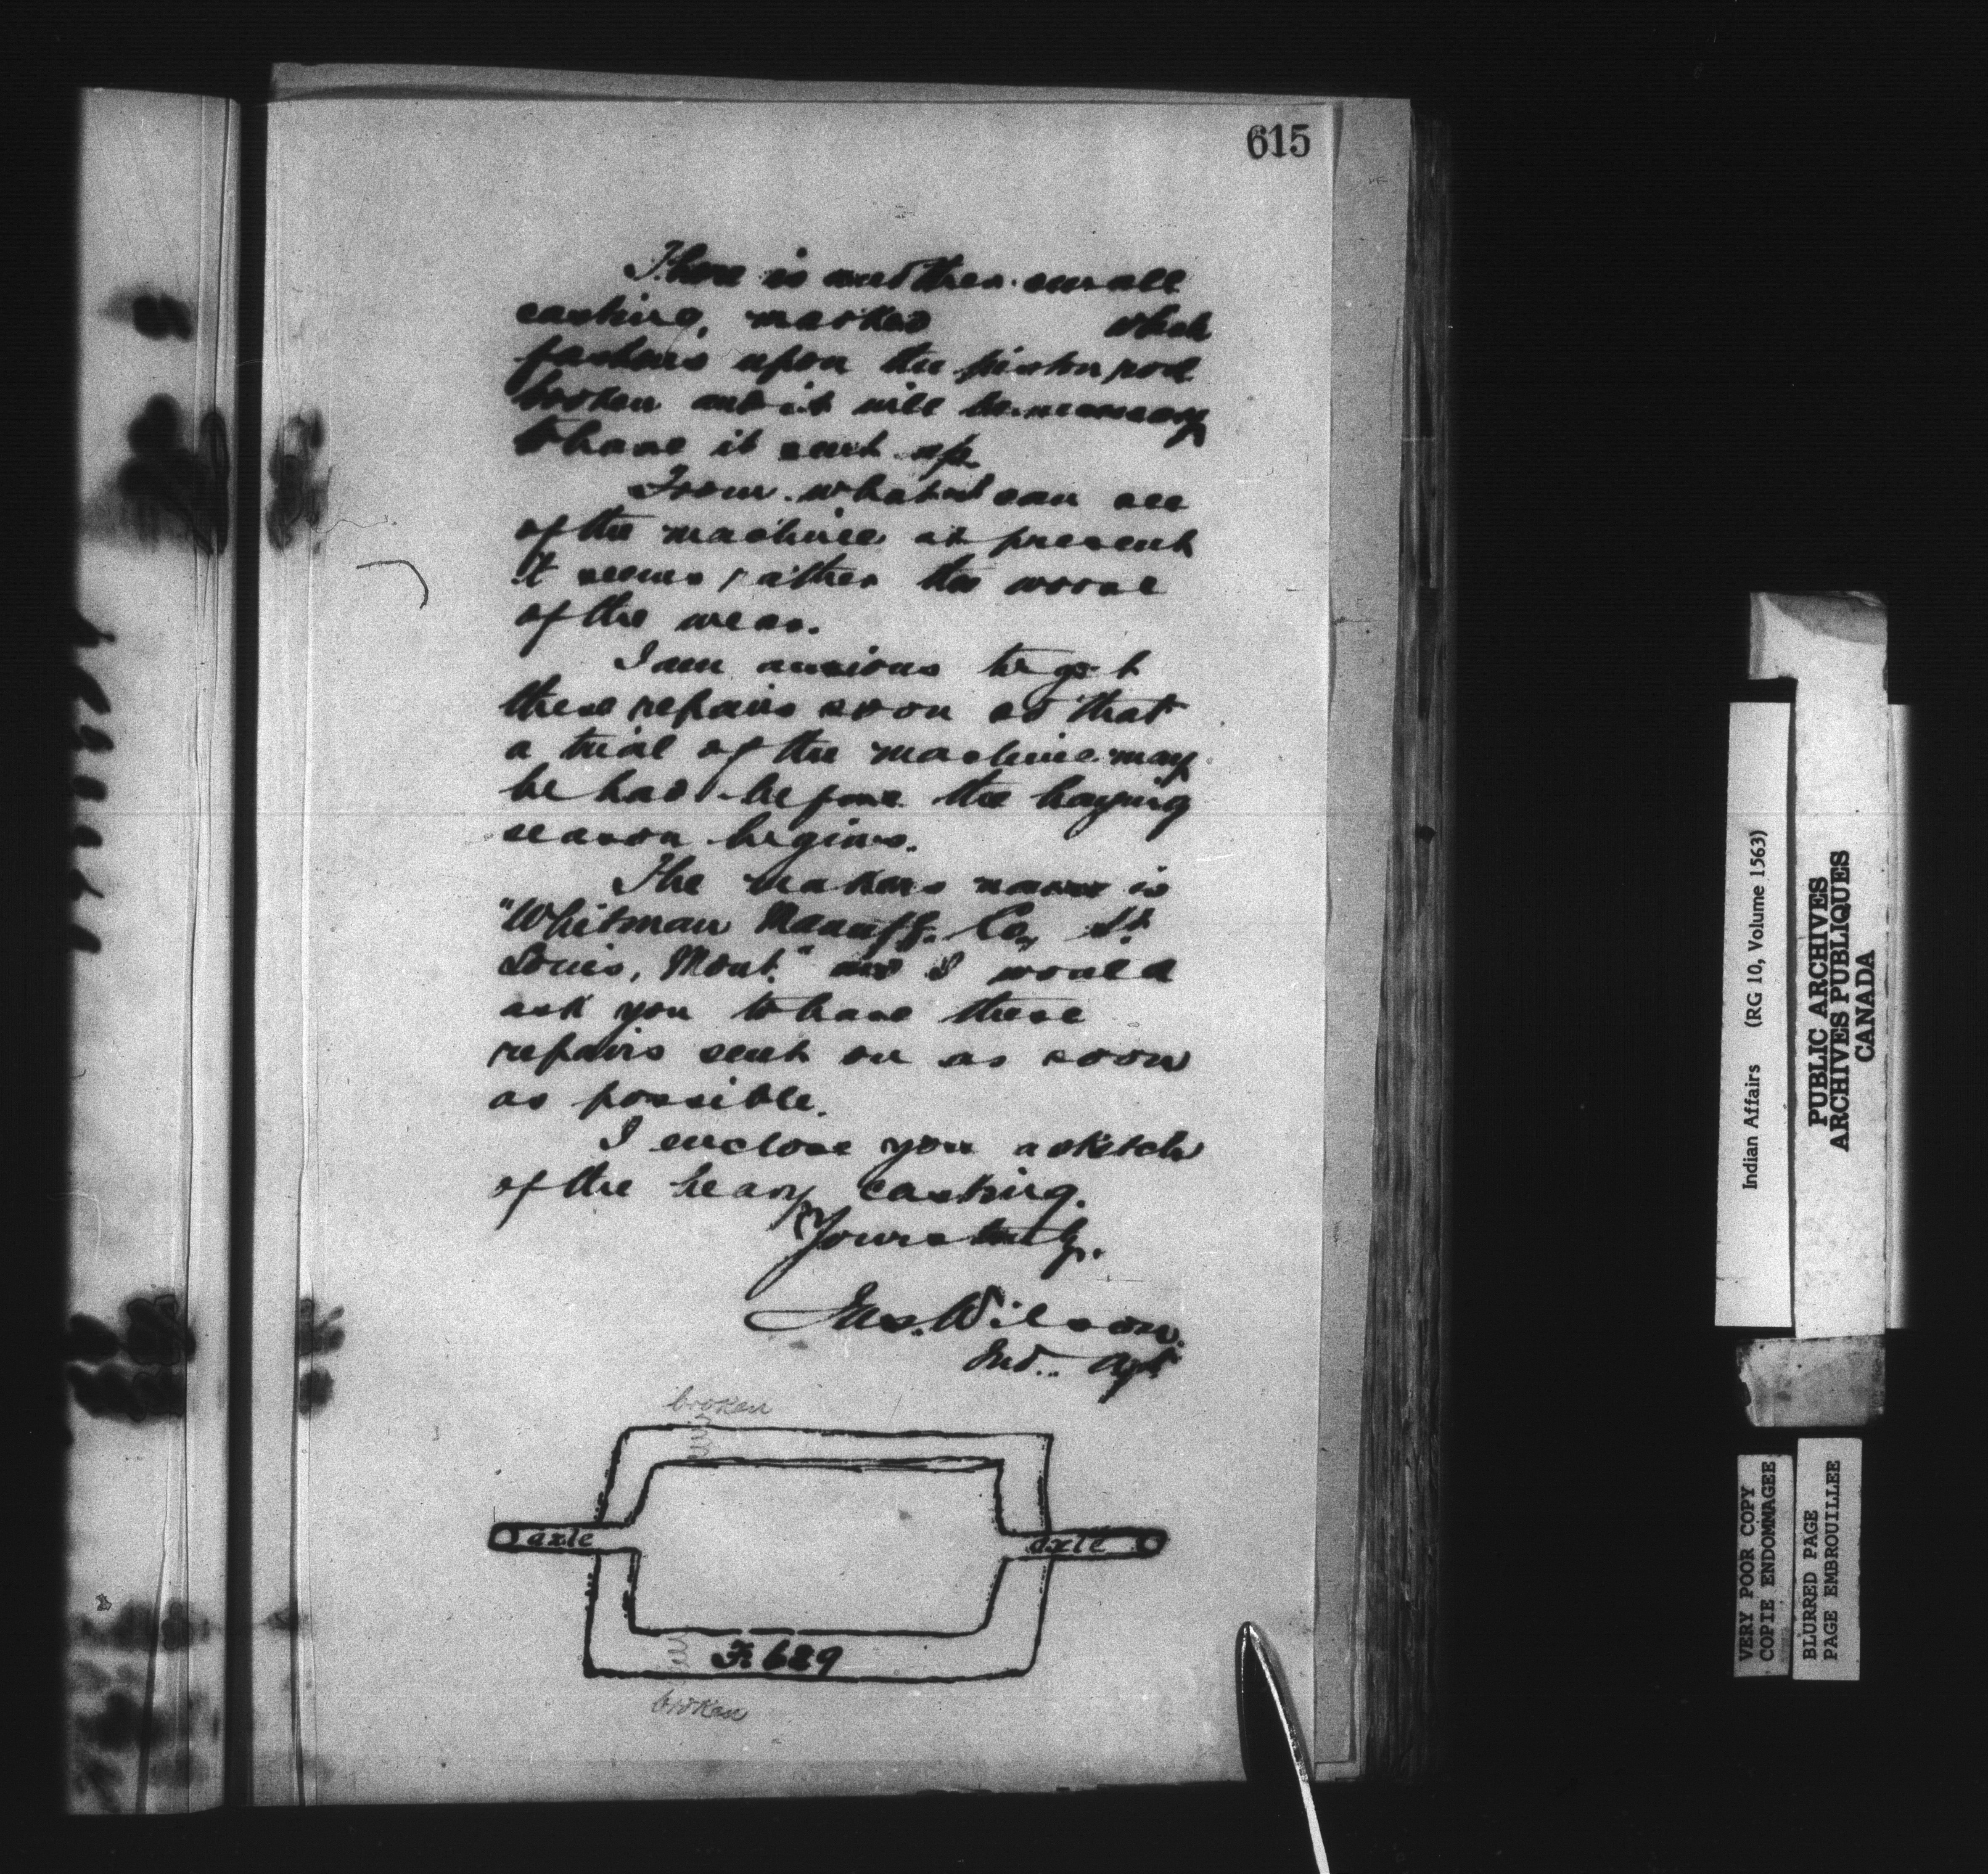 615
There is another small
casting, marked which
fastens upon the piston rod
broken and it will be necessary
to have it sent up.
From what I can see
of the machine at present
it seems rather the worse
of the wear.
I am anxious to get
these repairs soon so that
a trial of the machine may
be had before the haying
season begins.
The makers name is
"Whitman Manuffg. Co, St.
Louis, Mont." and I would
ask you to have these
repairs sent on as soon
as possible.
I enclose you a sketch
of the heavy casting.
Yours truly,
Jas. Wilson.
Ind. Agt
broken
axle
axle
F 689
broken
Indian Affairs (RG 10, Volume 1563)
PUBLIC ARCHIVES
ARCHIVES PUBLIQUES
CANADA
VERY POOR COPY
COPIE ENDOMMAGEE
BLURRED PAGE
PAGE EMBROUILLEE